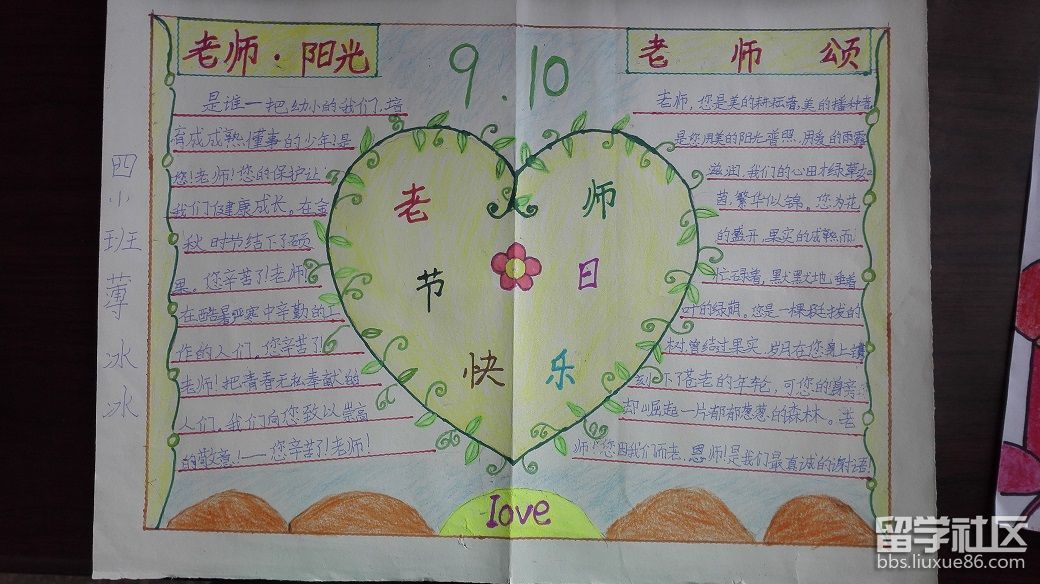 老师·阳光
是谁一把幼小的我们,培
育成成熟懂事的少年?是
您!老师!您的保护让
我们健康成长。在金
秋时节结下了硕
果。您辛苦了!老师!
在酷暑严寒中辛勤的工
作的人们。您辛苦了!
老师!把青春无私奉献给
人们。我们向您致以崇高
的敬意!——您辛苦了!老师!
9.10
老师
节日
快乐
love
老师颂
老师,您是美的耕耘者,美的播种者
是您用美的阳光普照,用爱的雨露
滋润,我们的心田才绿草如
茵,繁华似锦。您为花
的盛开,果实的成熟而
忙碌着,默默默地垂着
叶的绿荫。您是一棵挺拔的
树曾结过果实,岁月在您身上镌
刻下了苍老的年轮,可您的身旁
却崛起一片郁郁葱葱的森林。老
师!您因我们而老,恩师!是我们最真诚的谢语!
四小班薄冰冰
留学社区
bbs.liuxue86.com